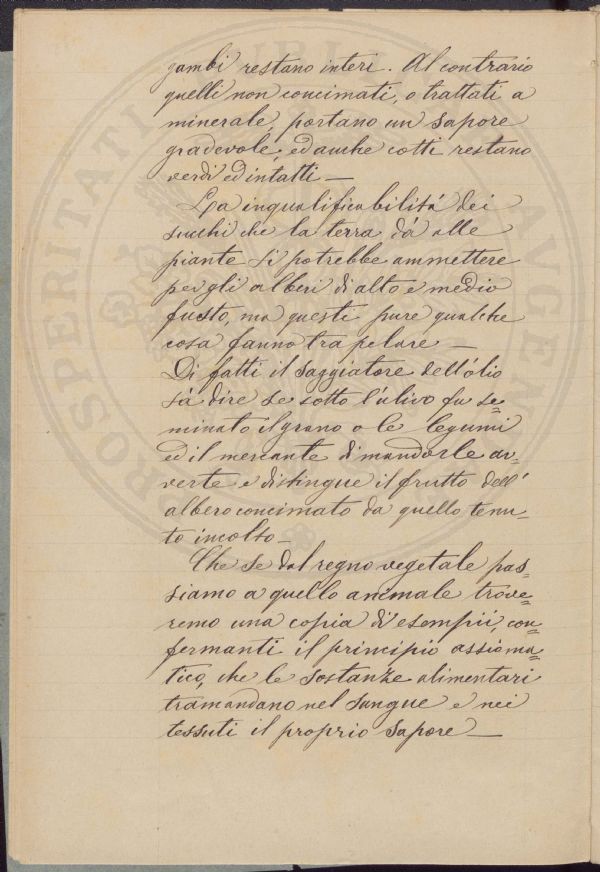 gambi restano interi. Al contrario
quelli non concimati, o trattati a
minerale, portano un sapore
gradevole, ed anche cotti restano
verdi ed intatti —
La inqualificabilitá dei
succhi che la terra dá alle
piante si potrebbe ammettere
per gli alberi di alto e medio
fusto, ma questi pure qualche
cosa fanno trapelare —
Di fatti il saggiatore dell'olio
sá dire se sotto l'ulivo fu se=
minato il grano o le legumi
ed il mercante di mandorle av=
verte e distingue il frutto dell'
albero concimato da quello tenu=
to incolto —
Che se dal regno vegetale pas=
siamo a quello animale trove=
remo una copia di esempii, con=
fermanti il principio assioma=
tico, che le sostanze alimentari
tramandano nel sangue e nei
tessuti il proprio sapore —
PROSPERITATI PUBLICAE AUGENDAE